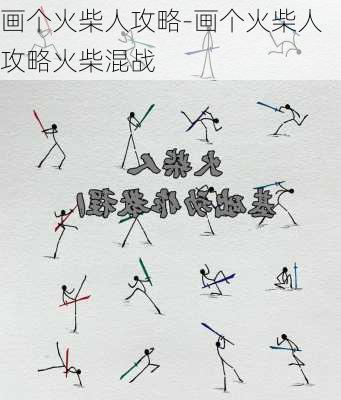 画个火柴人攻略-画个火柴人
攻略火柴混战
火柴人
基础动作教程!